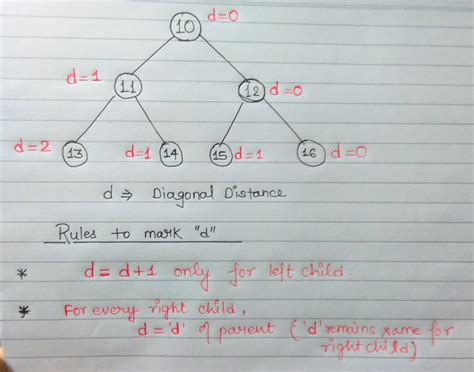 10 d=0
d=1 11 12 d=0
d=2 13 d=1 14 15 d=1 16 d=0
d ⇒ Diagonal Distance
Rules to mark "d"
* d = d+1 only for left child
* For every right child,
d = 'd' of parent ( 'd' remains same for
right child)